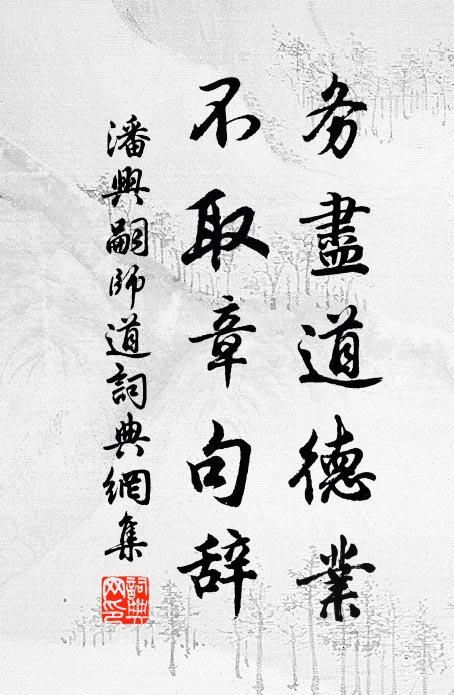 务盡道德業
不取章句辞
潘興嗣師道詞典網集
詞典網印